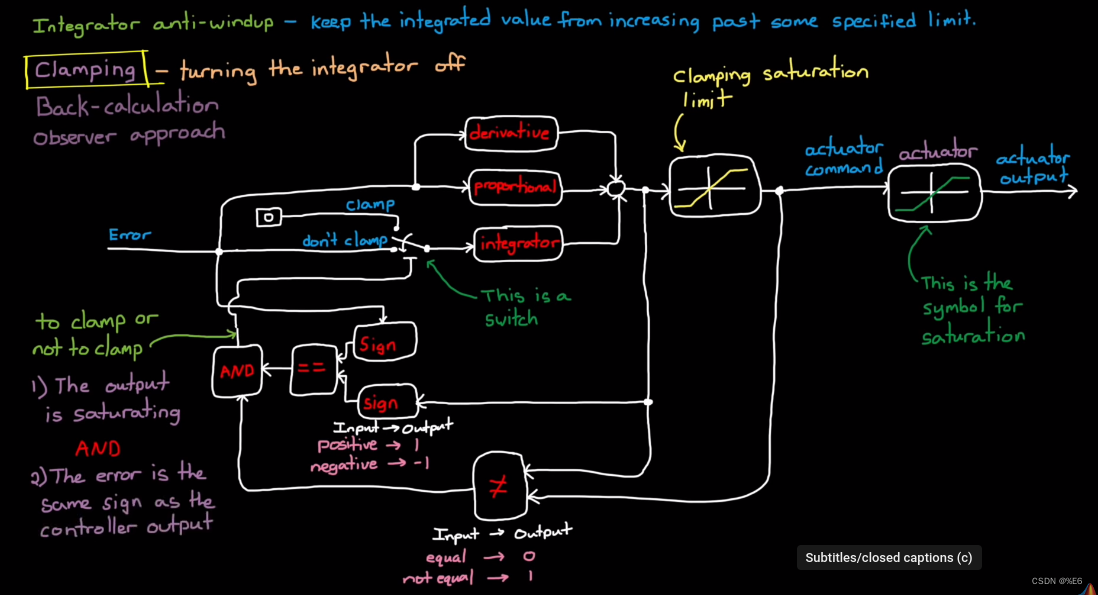 Integrator anti-windup – keep the integrated value from increasing past some specified limit.
Clamping – turning the integrator off
Back-calculation
observer approach
Clamping saturation
limit
derivative
proportional
integrator
actuator
command
actuator
actuator
output
clamp
0
Error
don't clamp
This is a
switch
This is the
symbol for
saturation
to clamp or
not to clamp
Sign
AND
==
sign
1) The output
is saturating
AND
2) The error is the
same sign as the
controller output
Input → Output
positive → 1
negative → -1
≠
Input → Output
equal → 0
not equal → 1
Subtitles/closed captions (c)
CSDN @%E6